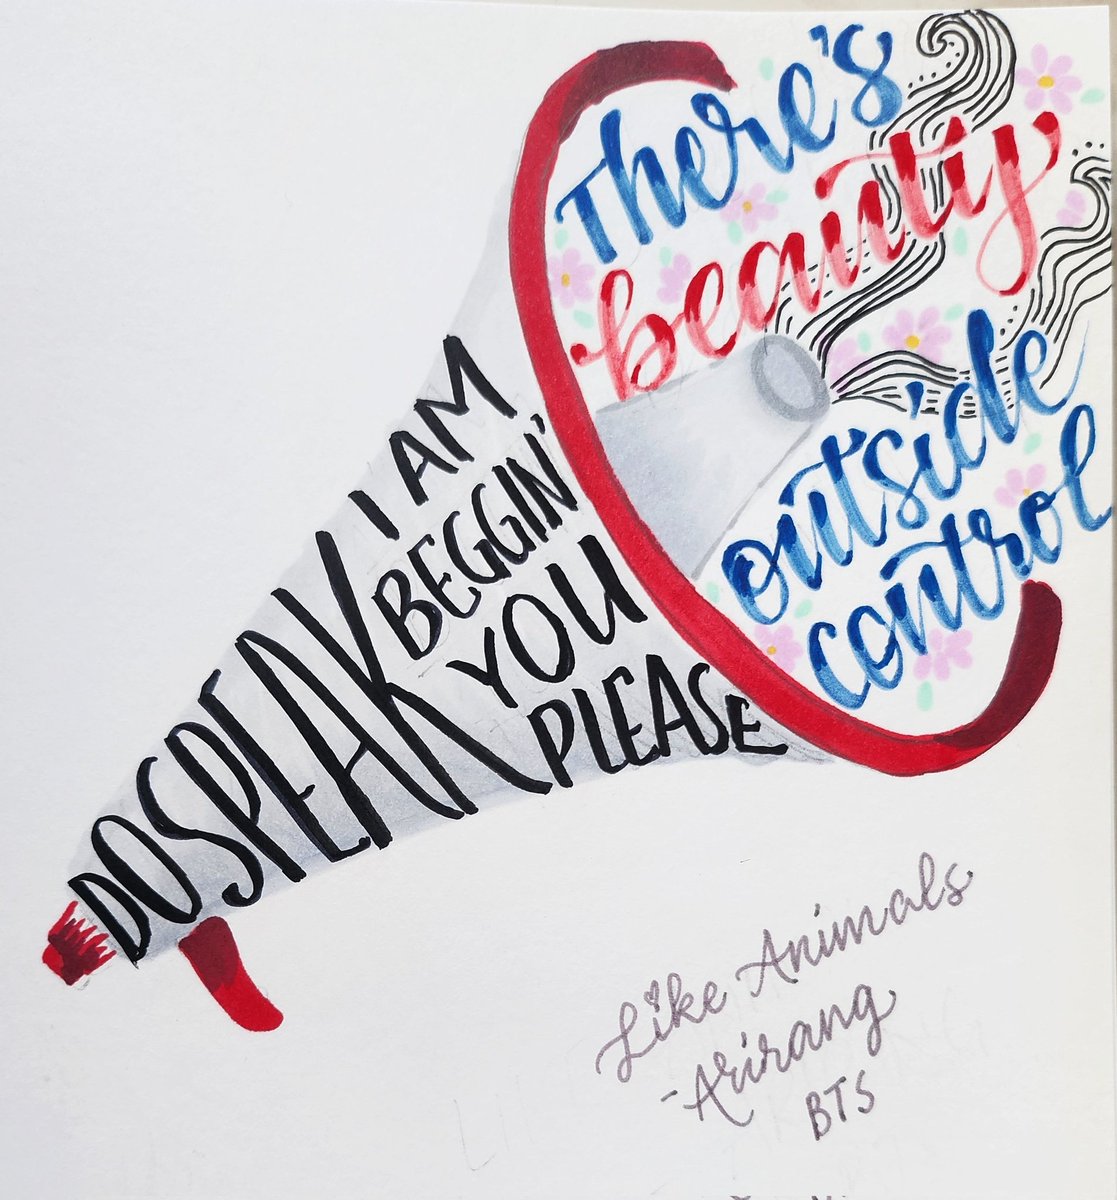 DO SPEAK
I AM
BEGGIN'
YOU
PLEASE
There's
beauty
outside
control
Like Animals
-Arirang
BTS